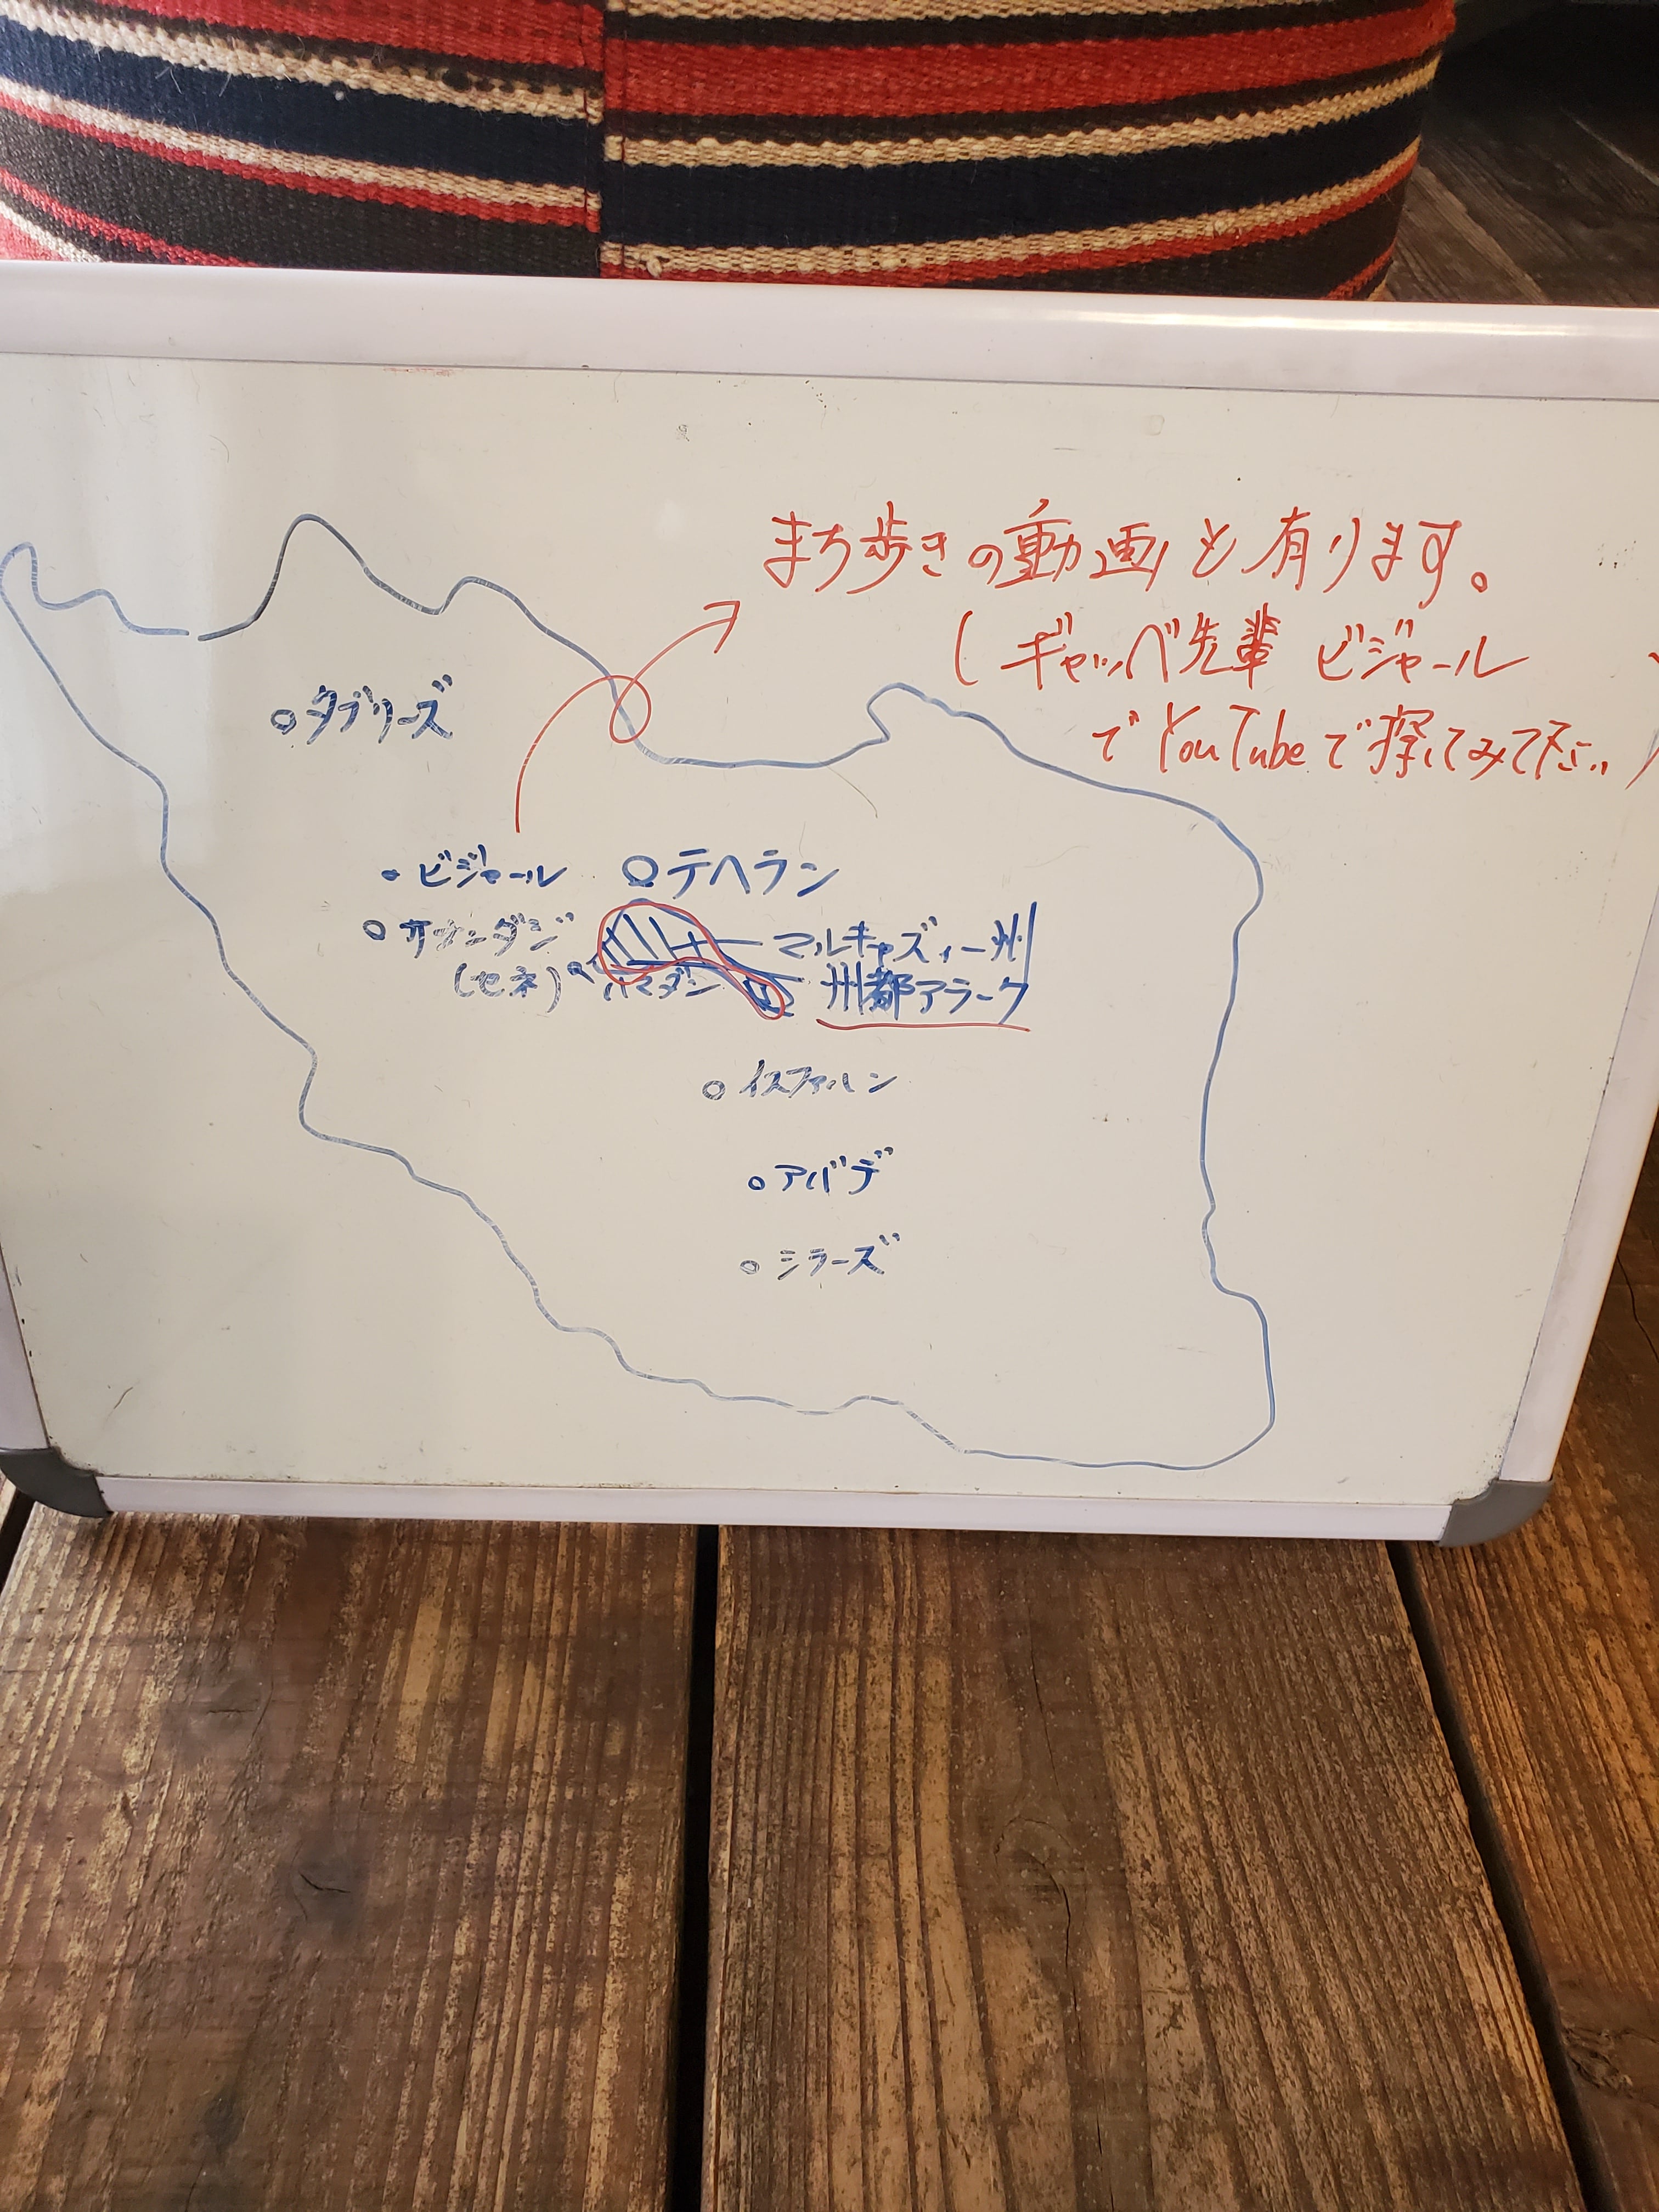 まち歩きの動画も有ります。
(ギャッベ先輩 ビジャール
でYouTubeで探してみて下さい)
タブリーズ
ビジャール
テヘラン
サナンダジ
(セネ)
ハマダン
マルキャズィー州
州都アラーク
イスファハン
アバデ
シラーズ